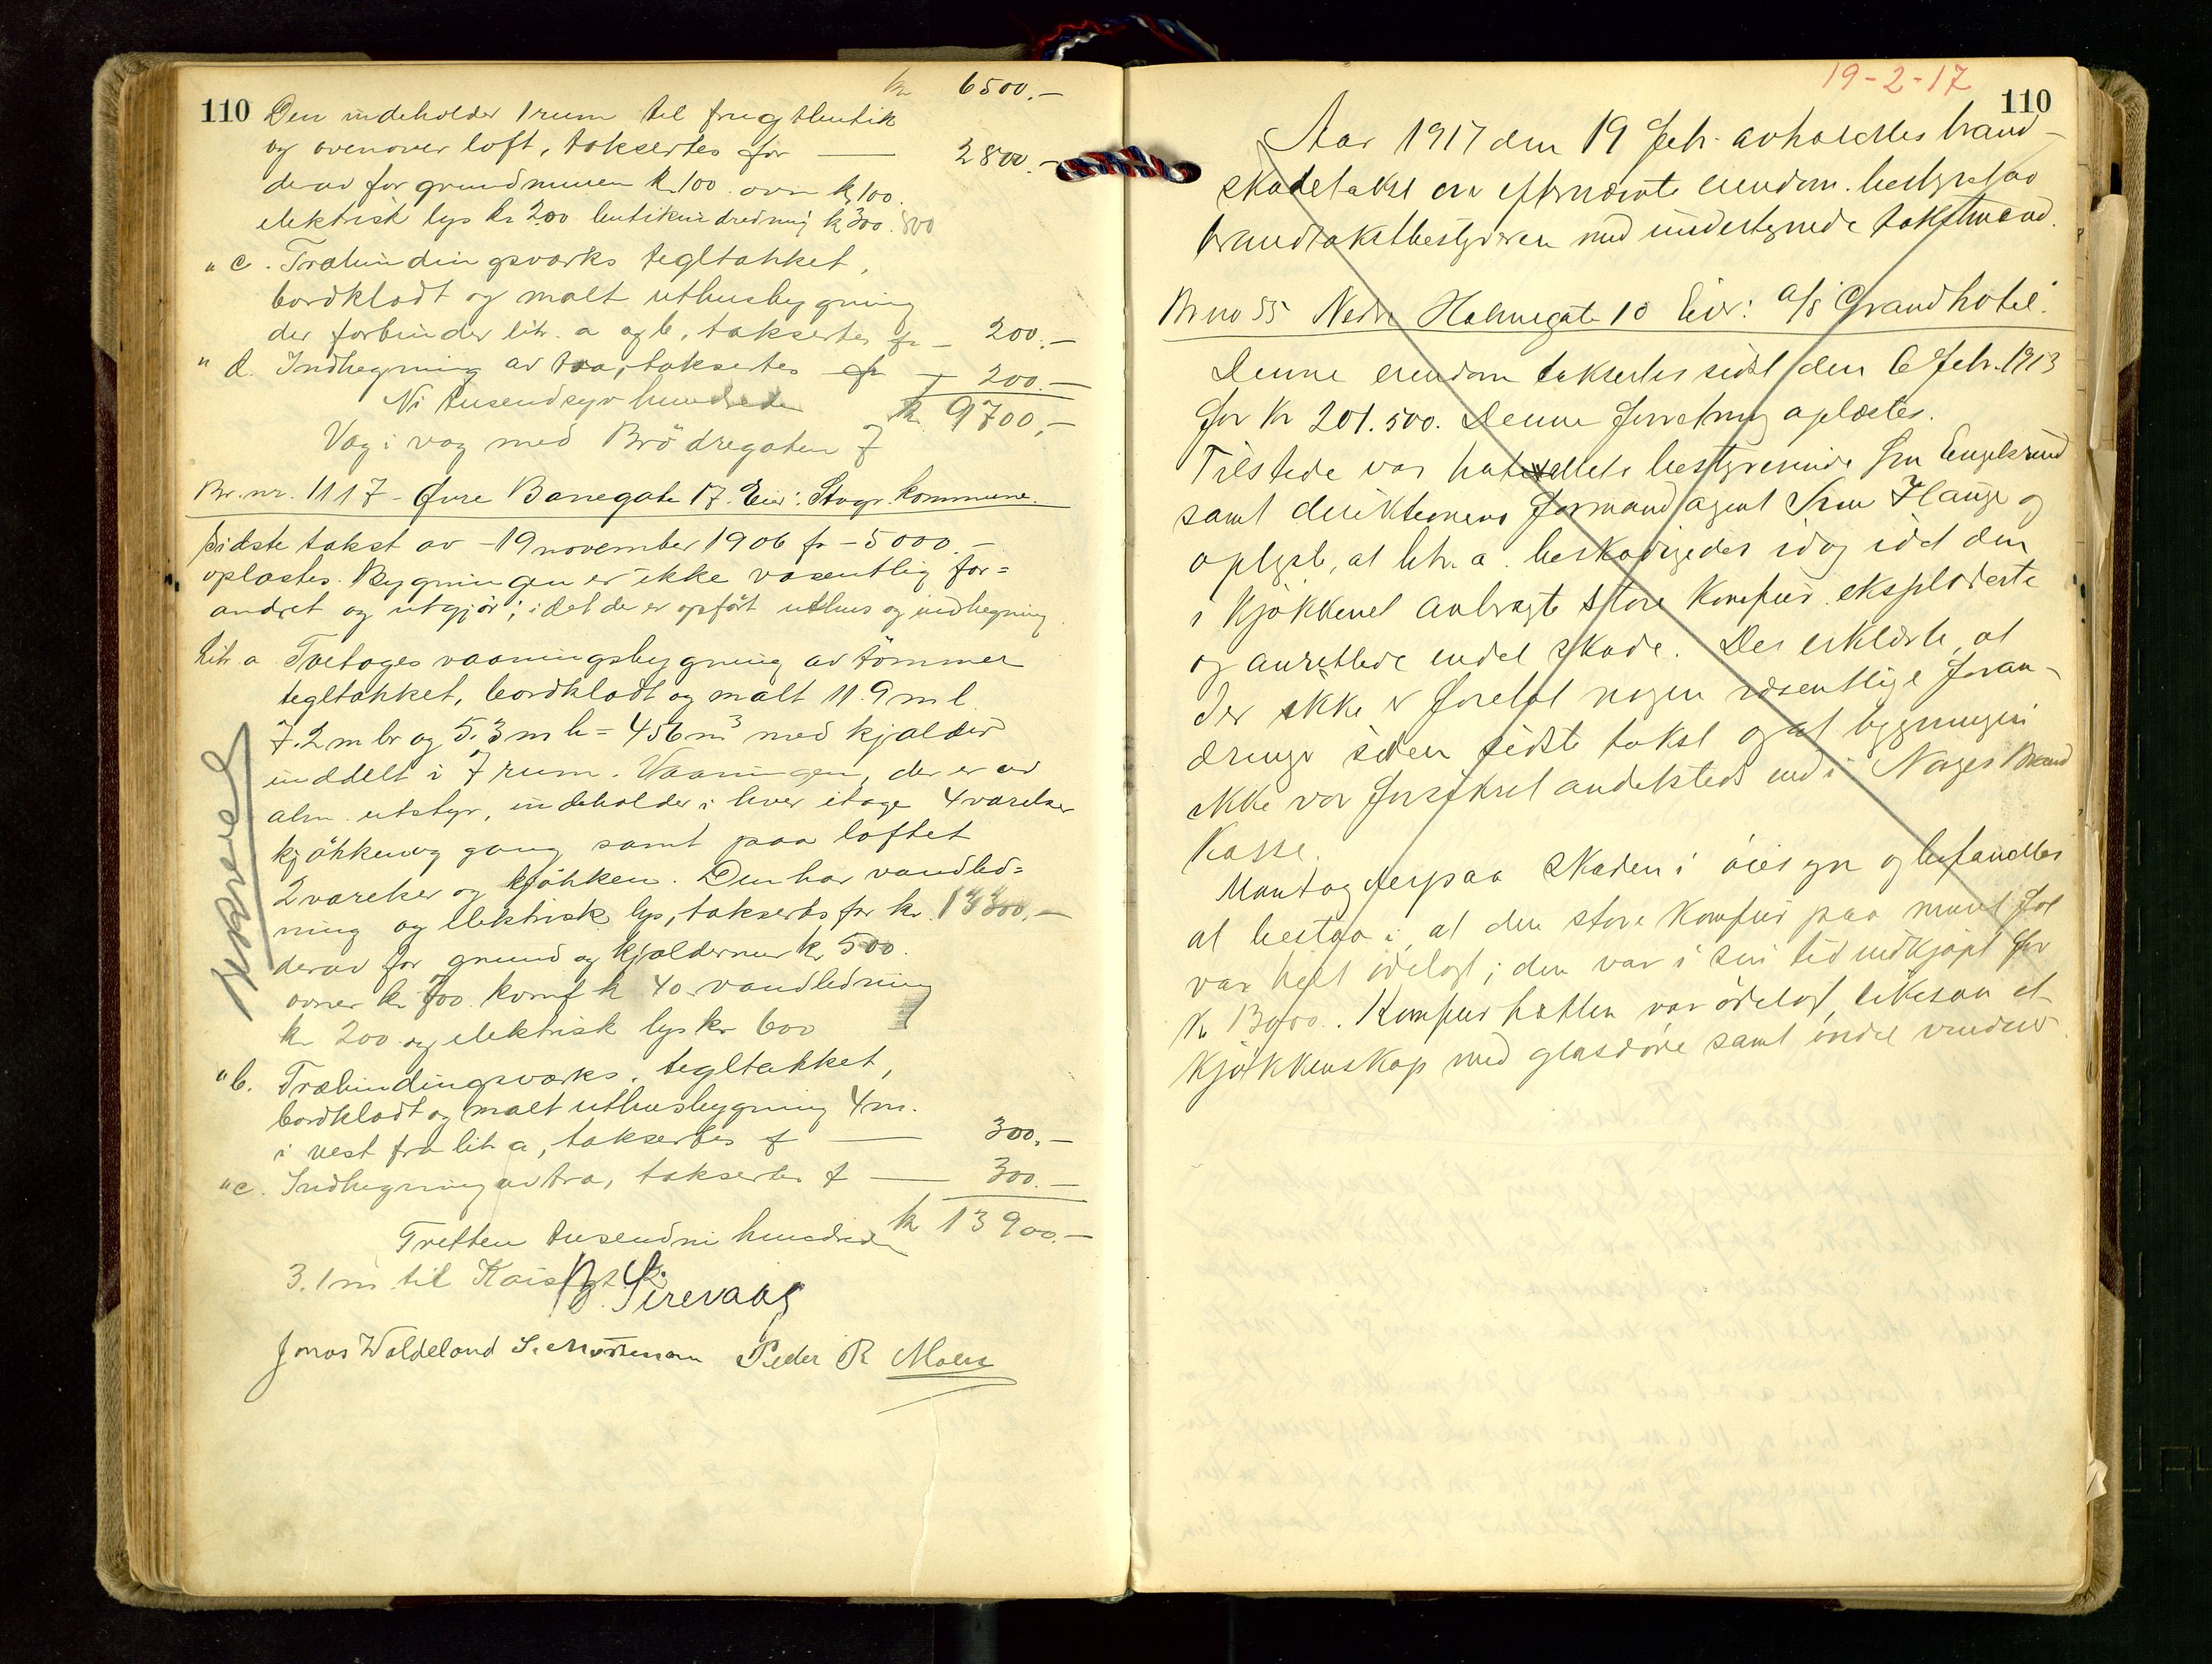 kr 6500.-
110 Den indeholder 1 rum til frugtbutik
og ovenover loft, taksertes for — 2800.-
derav for grundmuren kr 100. ovn kr 100.
elektrisk lys kr 200 butikindredning kr 300.
" c. Træbindingsværks tegltækket,
bordklædt og malt uthusbygning
der forbinder litr. a og b, taksertes fr - 200.-
" d. Indhegning av træ, taksertes fr - 200.-
Ni tusendsyv hundrede kr 9700,-
Væg i væg med Brödregaten 7
Br. nr. 1117 - Øvre Banegate 17. Eier: Stvgr. kommune.
Sidste takst av - 19 november 1906 fr - 5000.-
oplæstes. Bygningen er ikke væsentlig for=
andret og utgjör; idet der er opfört uthus og indhegning
Litr a Toetages vaaningsbygning av tömmer
tegltækket, bordklædt og malt 11.9 m l.
7.2 m br og 5.3 m h = 456 m³ med kjælder
inddelt i 7 rum. Vaaningen, der er av
alm. utstyr, indeholder i hver etage 4 værelser
kjökken og gang samt paa loftet
2 værelser og kjökken. Den har vandled=
ning og elektrisk lys, taksertes for kr. 13300,-
derav for grund og kjældermur kr 500.
ovner kr 700 komf kr 40 vandledning
kr 200 og elektrisk lys kr 600
" b. Træbindingsværks, tegltækket,
bordklædt og malt uthusbygning 4 m.
i vest fra litr a, taksertes f — 300.-
" c. Indhegning av træ, taksertes f — 300.-
Tretten tusendni hundrede kr 13900.-
3.1 m til
B. Sirevaag
Jonas Waldeland S. Mortensen Peder R Moen
19-2-17
110
Aar 1917 den 19 Febr. avholdtes brand-
skadetakst over efternævnte eiendom. bestyret av
brandtakstbestyreren med undertegnede takstmænd.
Br no 55 Nedre Holmegate 10 Eier: a/s "Grand hotel".
Denne eiendom taksertes sidst den 6 Febr. 1913
for kr 201.500. Denne forretning oplæstes.
Tilstede var hotellets bestyrerinde frk Engelsund
samt direktionens formand agent Sven Hauge og
oplyste, at litr. a. beskadigedes idag idet den
i kjøkkenet anbragte store komfur eksploderte
og anrettede endel skade. Der erklærte, at
der ikke er foretat nogen væsentlige foran-
dringer siden sidste takst og at bygningen
ikke var forsikret andetsteds end i Norges Brand
Kasse.
Mantog derpaa skaden i øiesyn og befandtes
at bestaa i, at den store komfur paa muret fot
var helt ødelagt; den var i sin tid indkjøpt for
kr 1300.00. Komfur hatten var ødelagt, likesaa et
kjøkkenskap med glasdøre samt endel vinduer